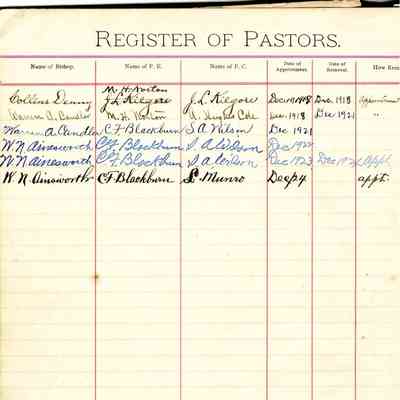 REGISTER OF PASTORS.
Name of Bishop. Name of P. E. Name of P. C. Date of Appointment. Date of Removal. How Rem
M. H. Norton
Collins Denny J L Kilgore J. L. Kilgore Dec 1918 Dec. 1918
Warren A. Candler M. H. Norton A. Hughes Cole Dec 1918 Dec 1921 "
Warren A Candler C F Blackburn S A Wilson Dec 1921
W N Ainsworth C F Blackburn S A Wilson Dec 1922
W N Ainsworth C F Blackburn S A Wilson Dec 1923 Dec Appt
W N Ainsworth C F Blackburn Munro appt.